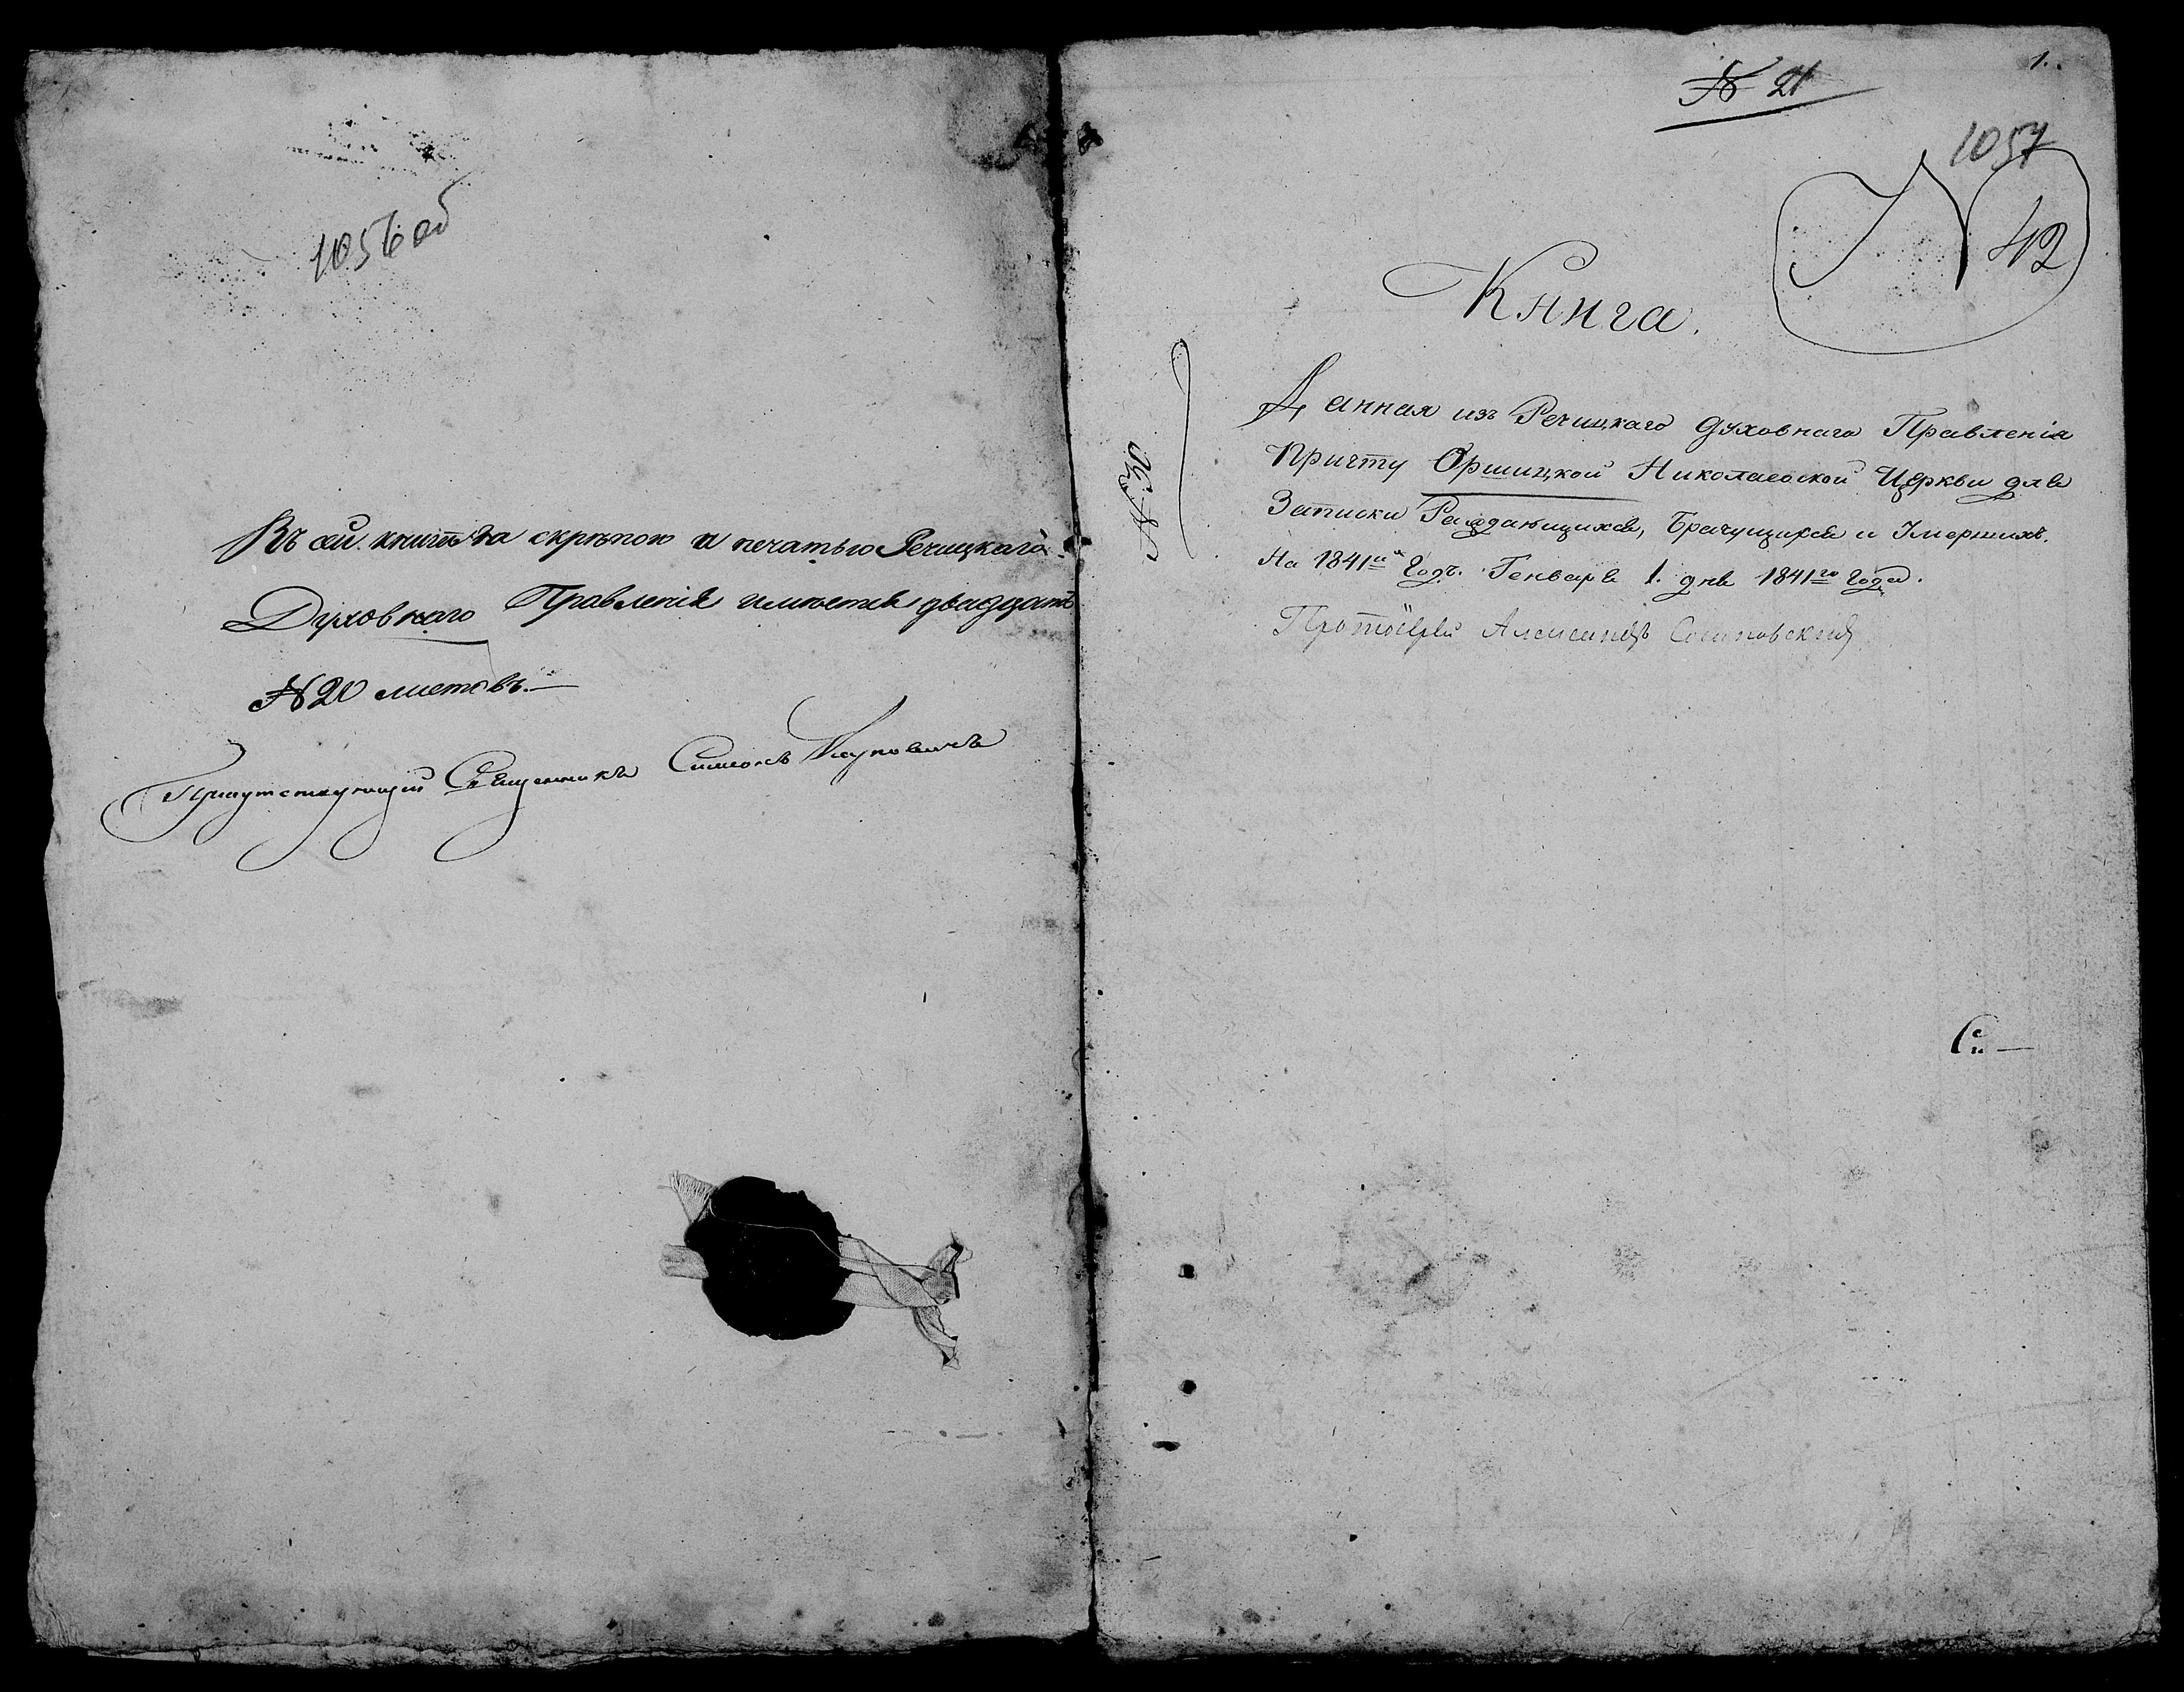 1056 об
Въ сей книгѣ за скрѣпою и печатью Речицкаго
Духовнаго Правленія имѣется двадцать
№ 20 листовъ.—
Присутствующій Священникъ Симонъ
№ 21
1.
1057
N 42
Книга.
Данная изъ Речицкаго Духовнаго Правленія
Причту Оршицкой Николаевской Церкви для
Записки Раждающихся, Брачущихся и Умершихъ.
На 1841й Годъ. Генваря 1. дня 1841го Года.
Протоіерей Александръ